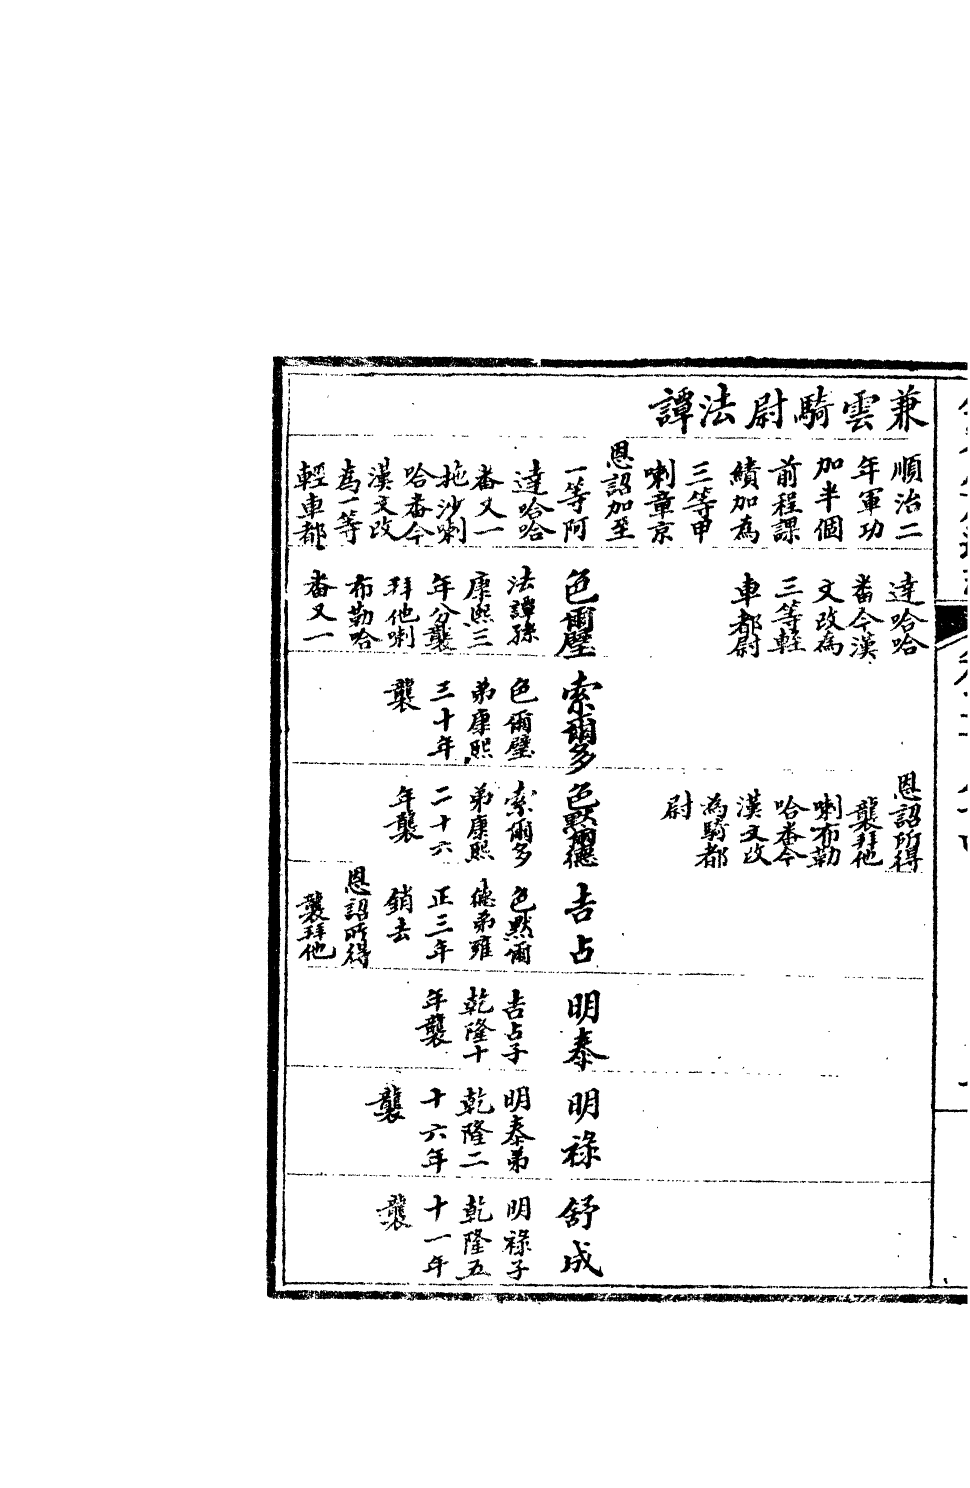 兼雲騎尉法譚
順治二
年軍功
加半個
前程課
績加為
三等甲
喇章京
恩詔加至
一等阿
達哈哈
番又一
拖沙喇
哈番今
漢文改
為一等
輕車都
達哈哈
番今漢
文改為
三等輕
車都尉
色爾璧
法譚孫
康熙三
年分襲
拜他喇
布勒哈
番又一
索爾多
色爾璧
弟康熙
三十年
襲
恩詔所得
襲拜他
喇布勒
哈番今
漢文改
為騎都
尉
色黙爾德
索爾多
弟康熙
二十六
年襲
吉占
色黙爾
德弟雍
正三年
銷去
恩詔所得
襲拜他
明泰
吉占子
乾隆十
年襲
明祿
明泰弟
乾隆二
十六年
襲
舒成
明祿子
乾隆五
十一年
襲